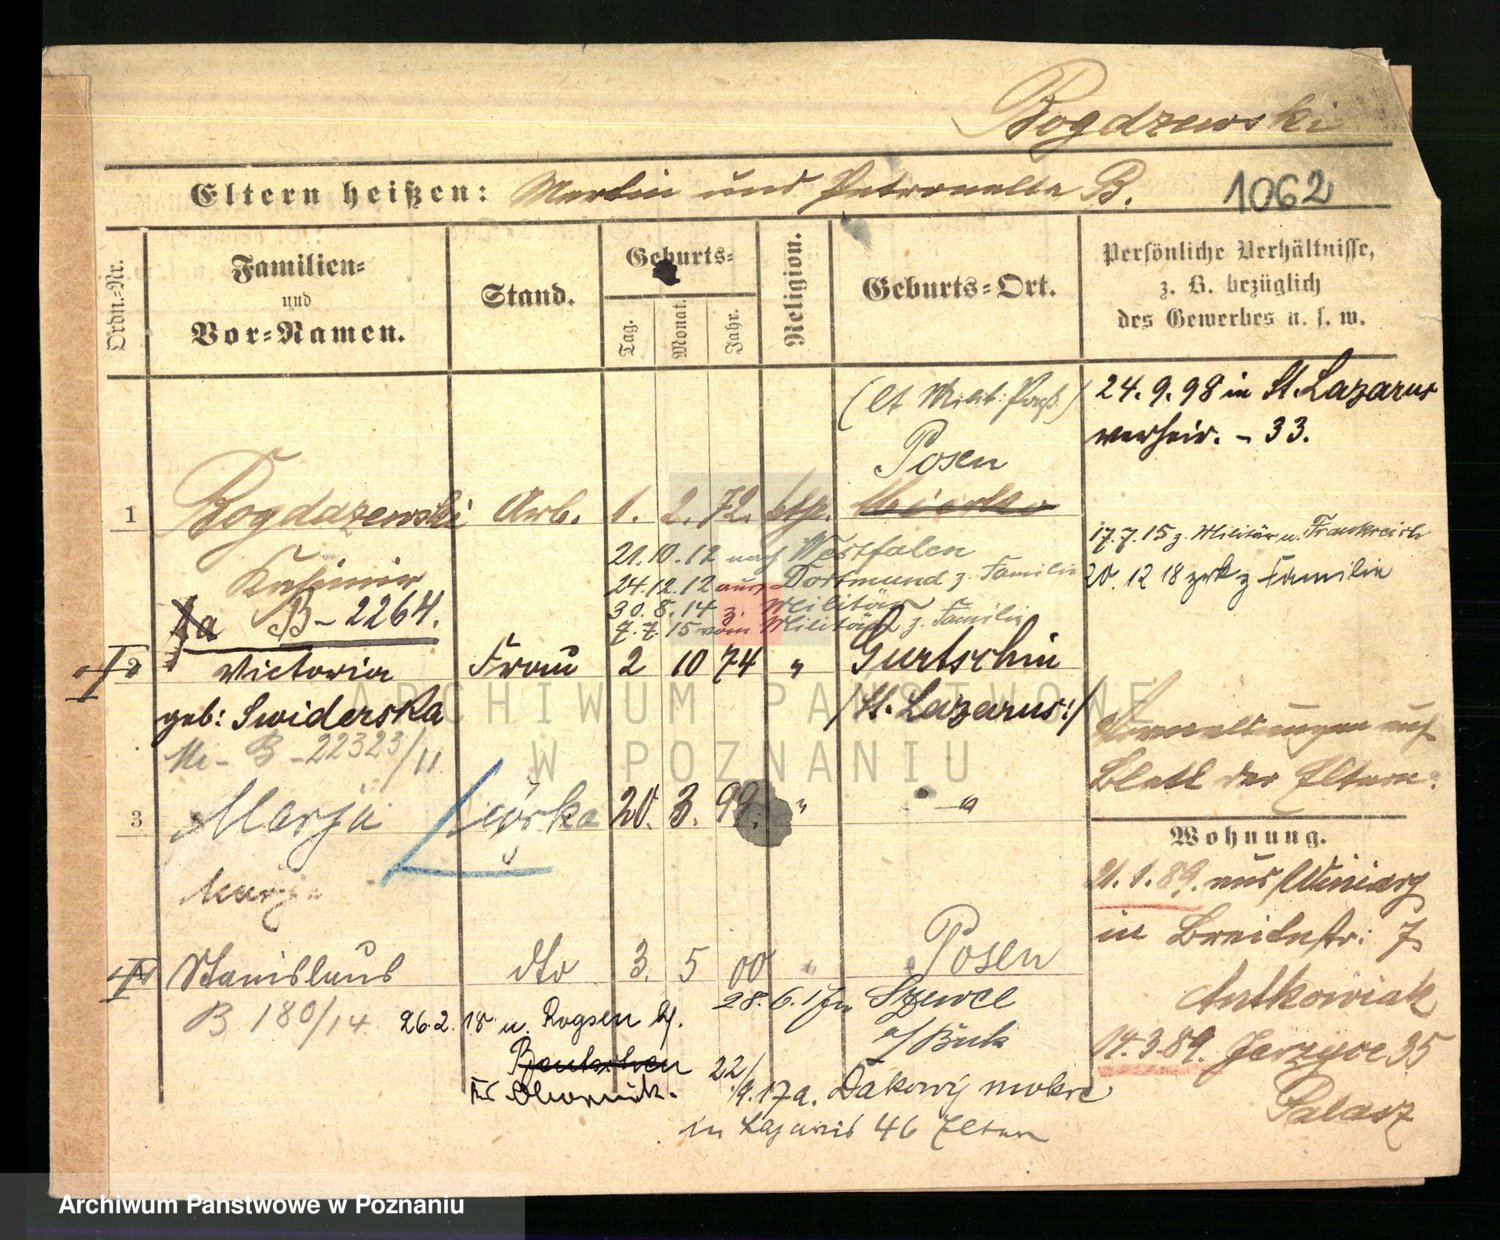 Bogdzewski
Eltern heißen: Martin und Petronella B. 1062
Ordn.-Nr.
Familien-
und
Vor-Namen.
Stand.
Geburts-
Tag. Monat. Jahr.
Religion.
Geburts-Ort.
Persönliche Verhältnisse,
z. B. bezüglich
des Gewerbes u. s. w.
24. 9. 98 in St. Lazarus
verheir. - 33.
Posen
1 Bogdazewski Arb. 1. 2. 72. kth.
Kasimir
B - 2264.
21.10.12 nach Westfalen
24.12.12 aus Dortmund z. Familie
30. 8. 14 z. Militär
7. 7. 15 vom Militär z. Familie
17. 7. 15 z. Militär n. Frankreich
20. 12 18 zrk z Familie
2 Victoria Frau 2 10 74 " Gurtschin
geb: Swiderska /St. Lazarus:/
B - 22323/11
3 Marja córka 20. 3. 99. " "
Marja
Blatt der Eltern.
Wohnung.
21. 1. 89. aus Winiary
in Breitestr: 7
Antkowiak
14. 3. 89. Jerzyce 35
Palacz
Stanislaus dto 3. 5 00 " Posen
B 180/14
28. 6. 17 Szewce
a/Buk
26. 2. 18 n. Rogsen
Bentschen
22/9. 17 a. Dakowy mokre
in Lazarus 46 Eltern
ARCHIWUM PAŃSTWOWE
W POZNANIU
Archiwum Państwowe w Poznaniu